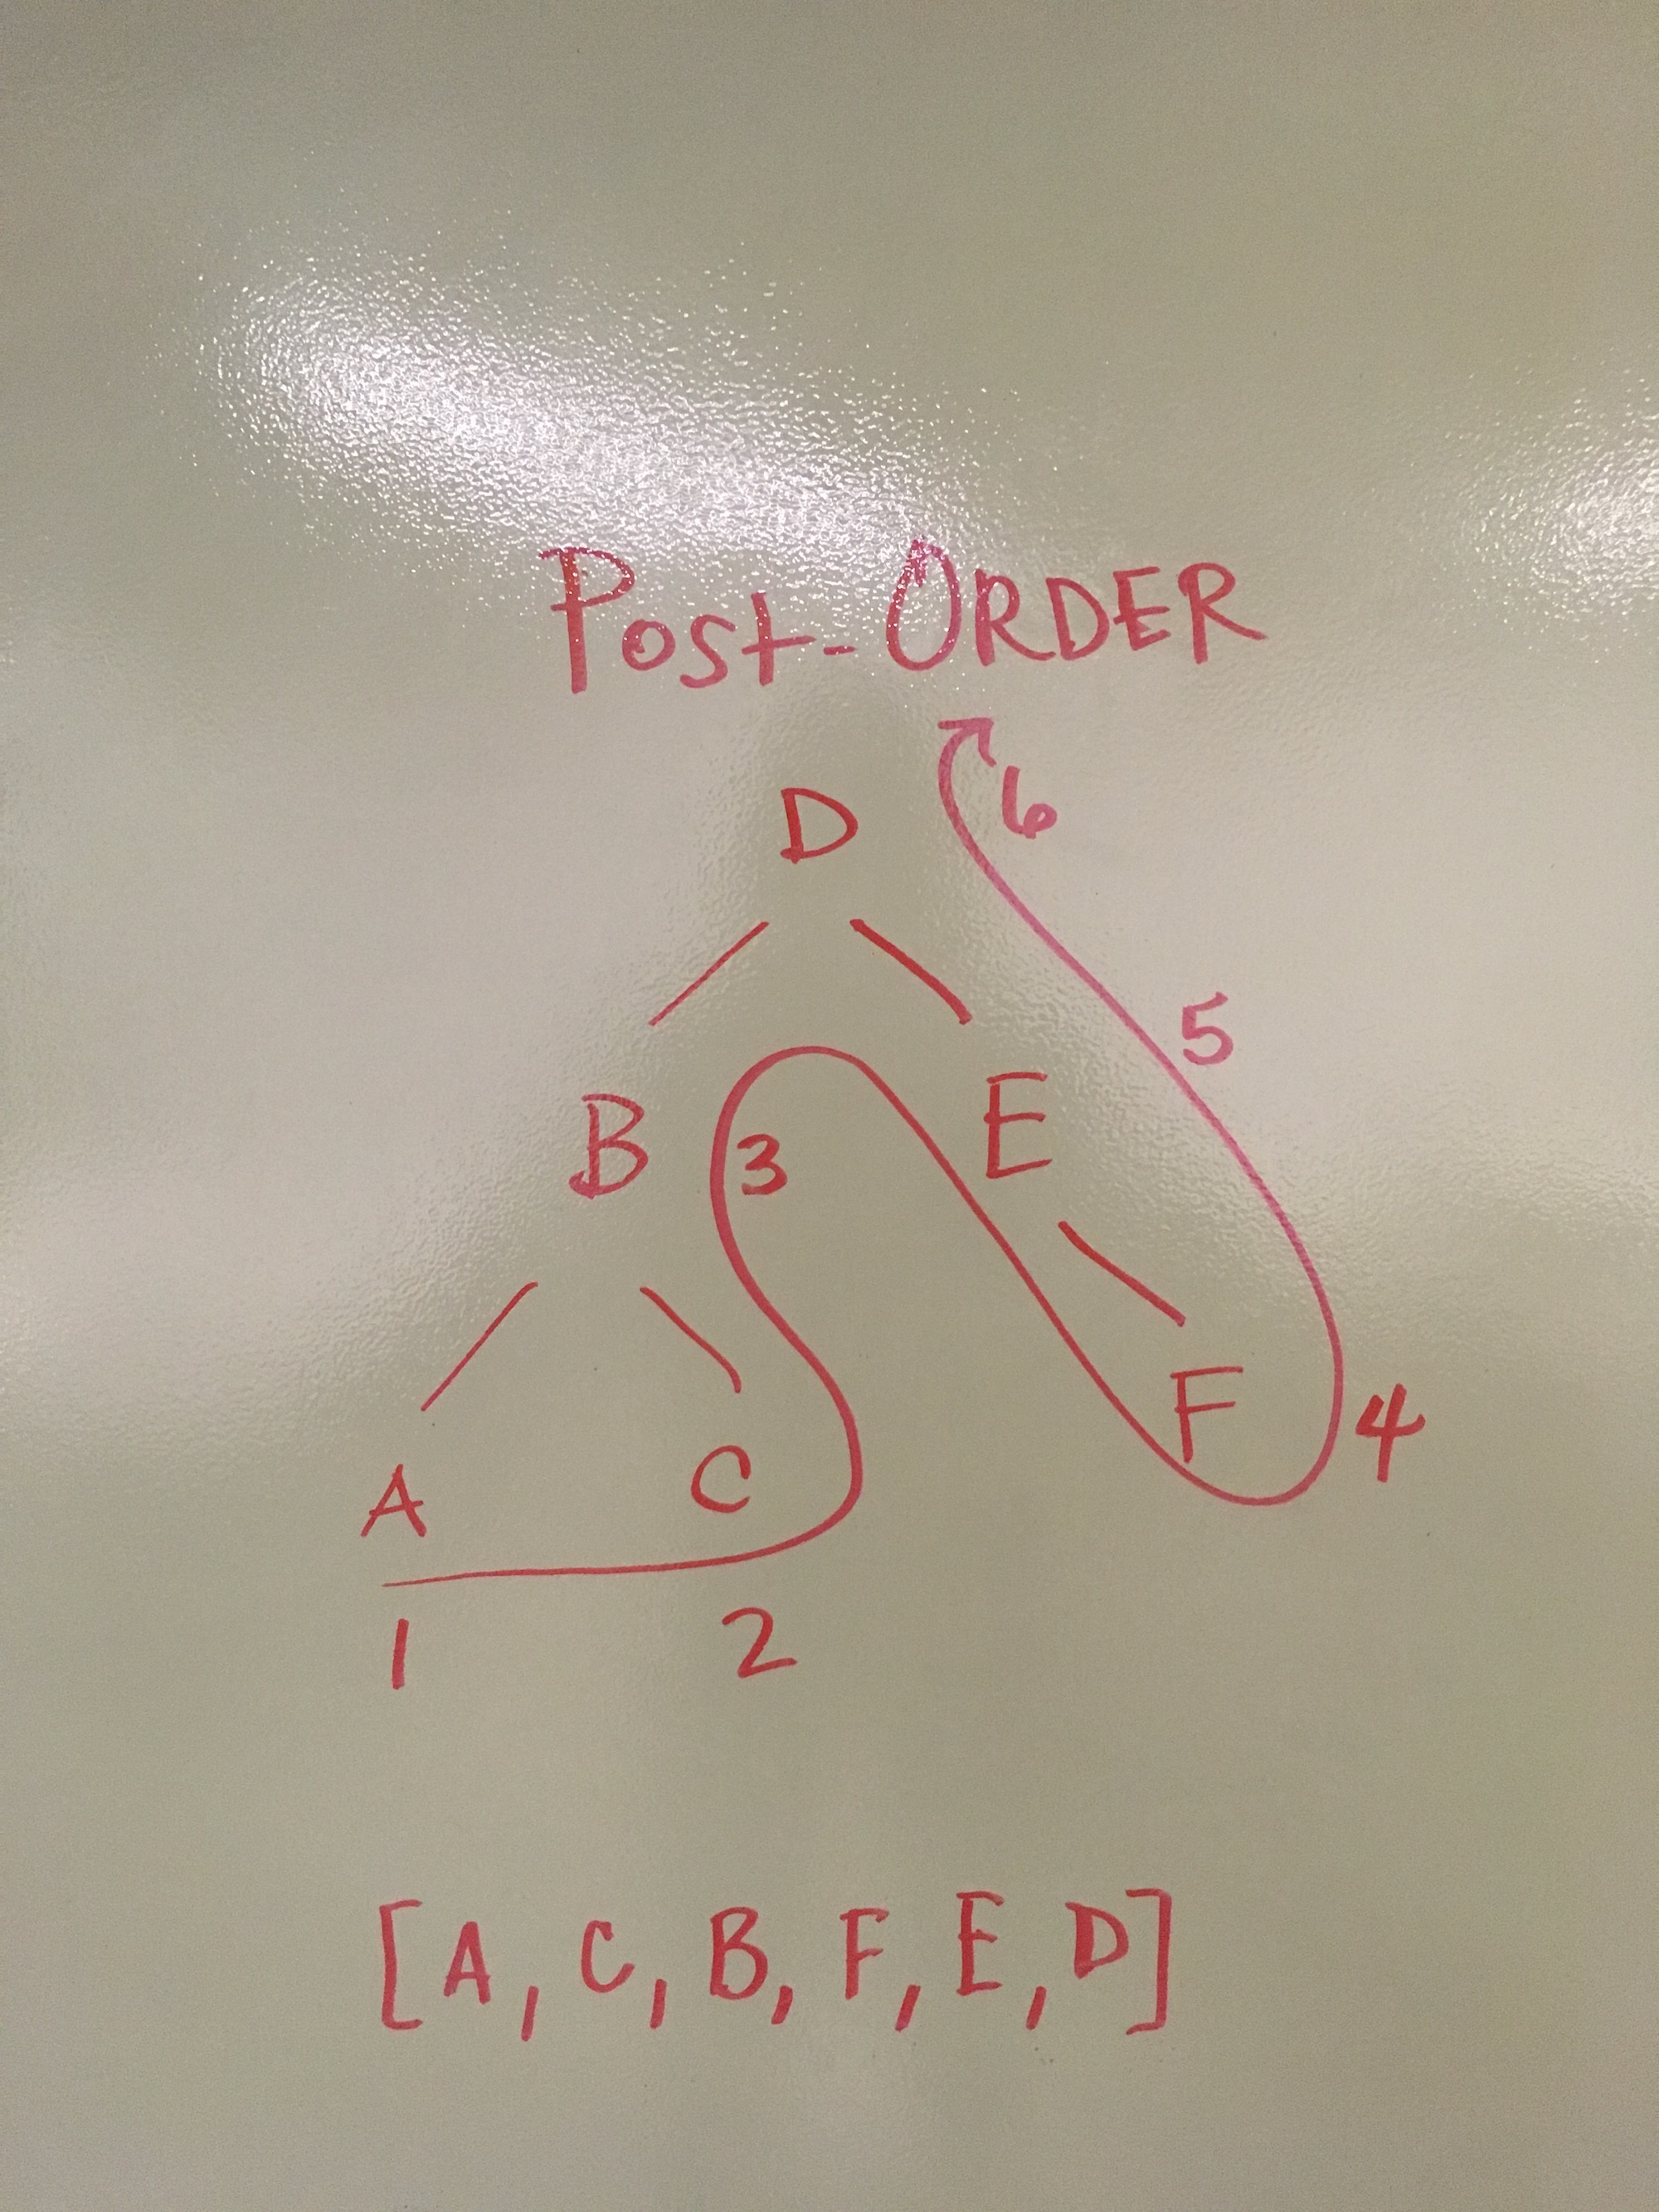 Post-ORDER
6
D
5
B 3 E
F 4
A C
1 2
[A, C, B, F, E, D]